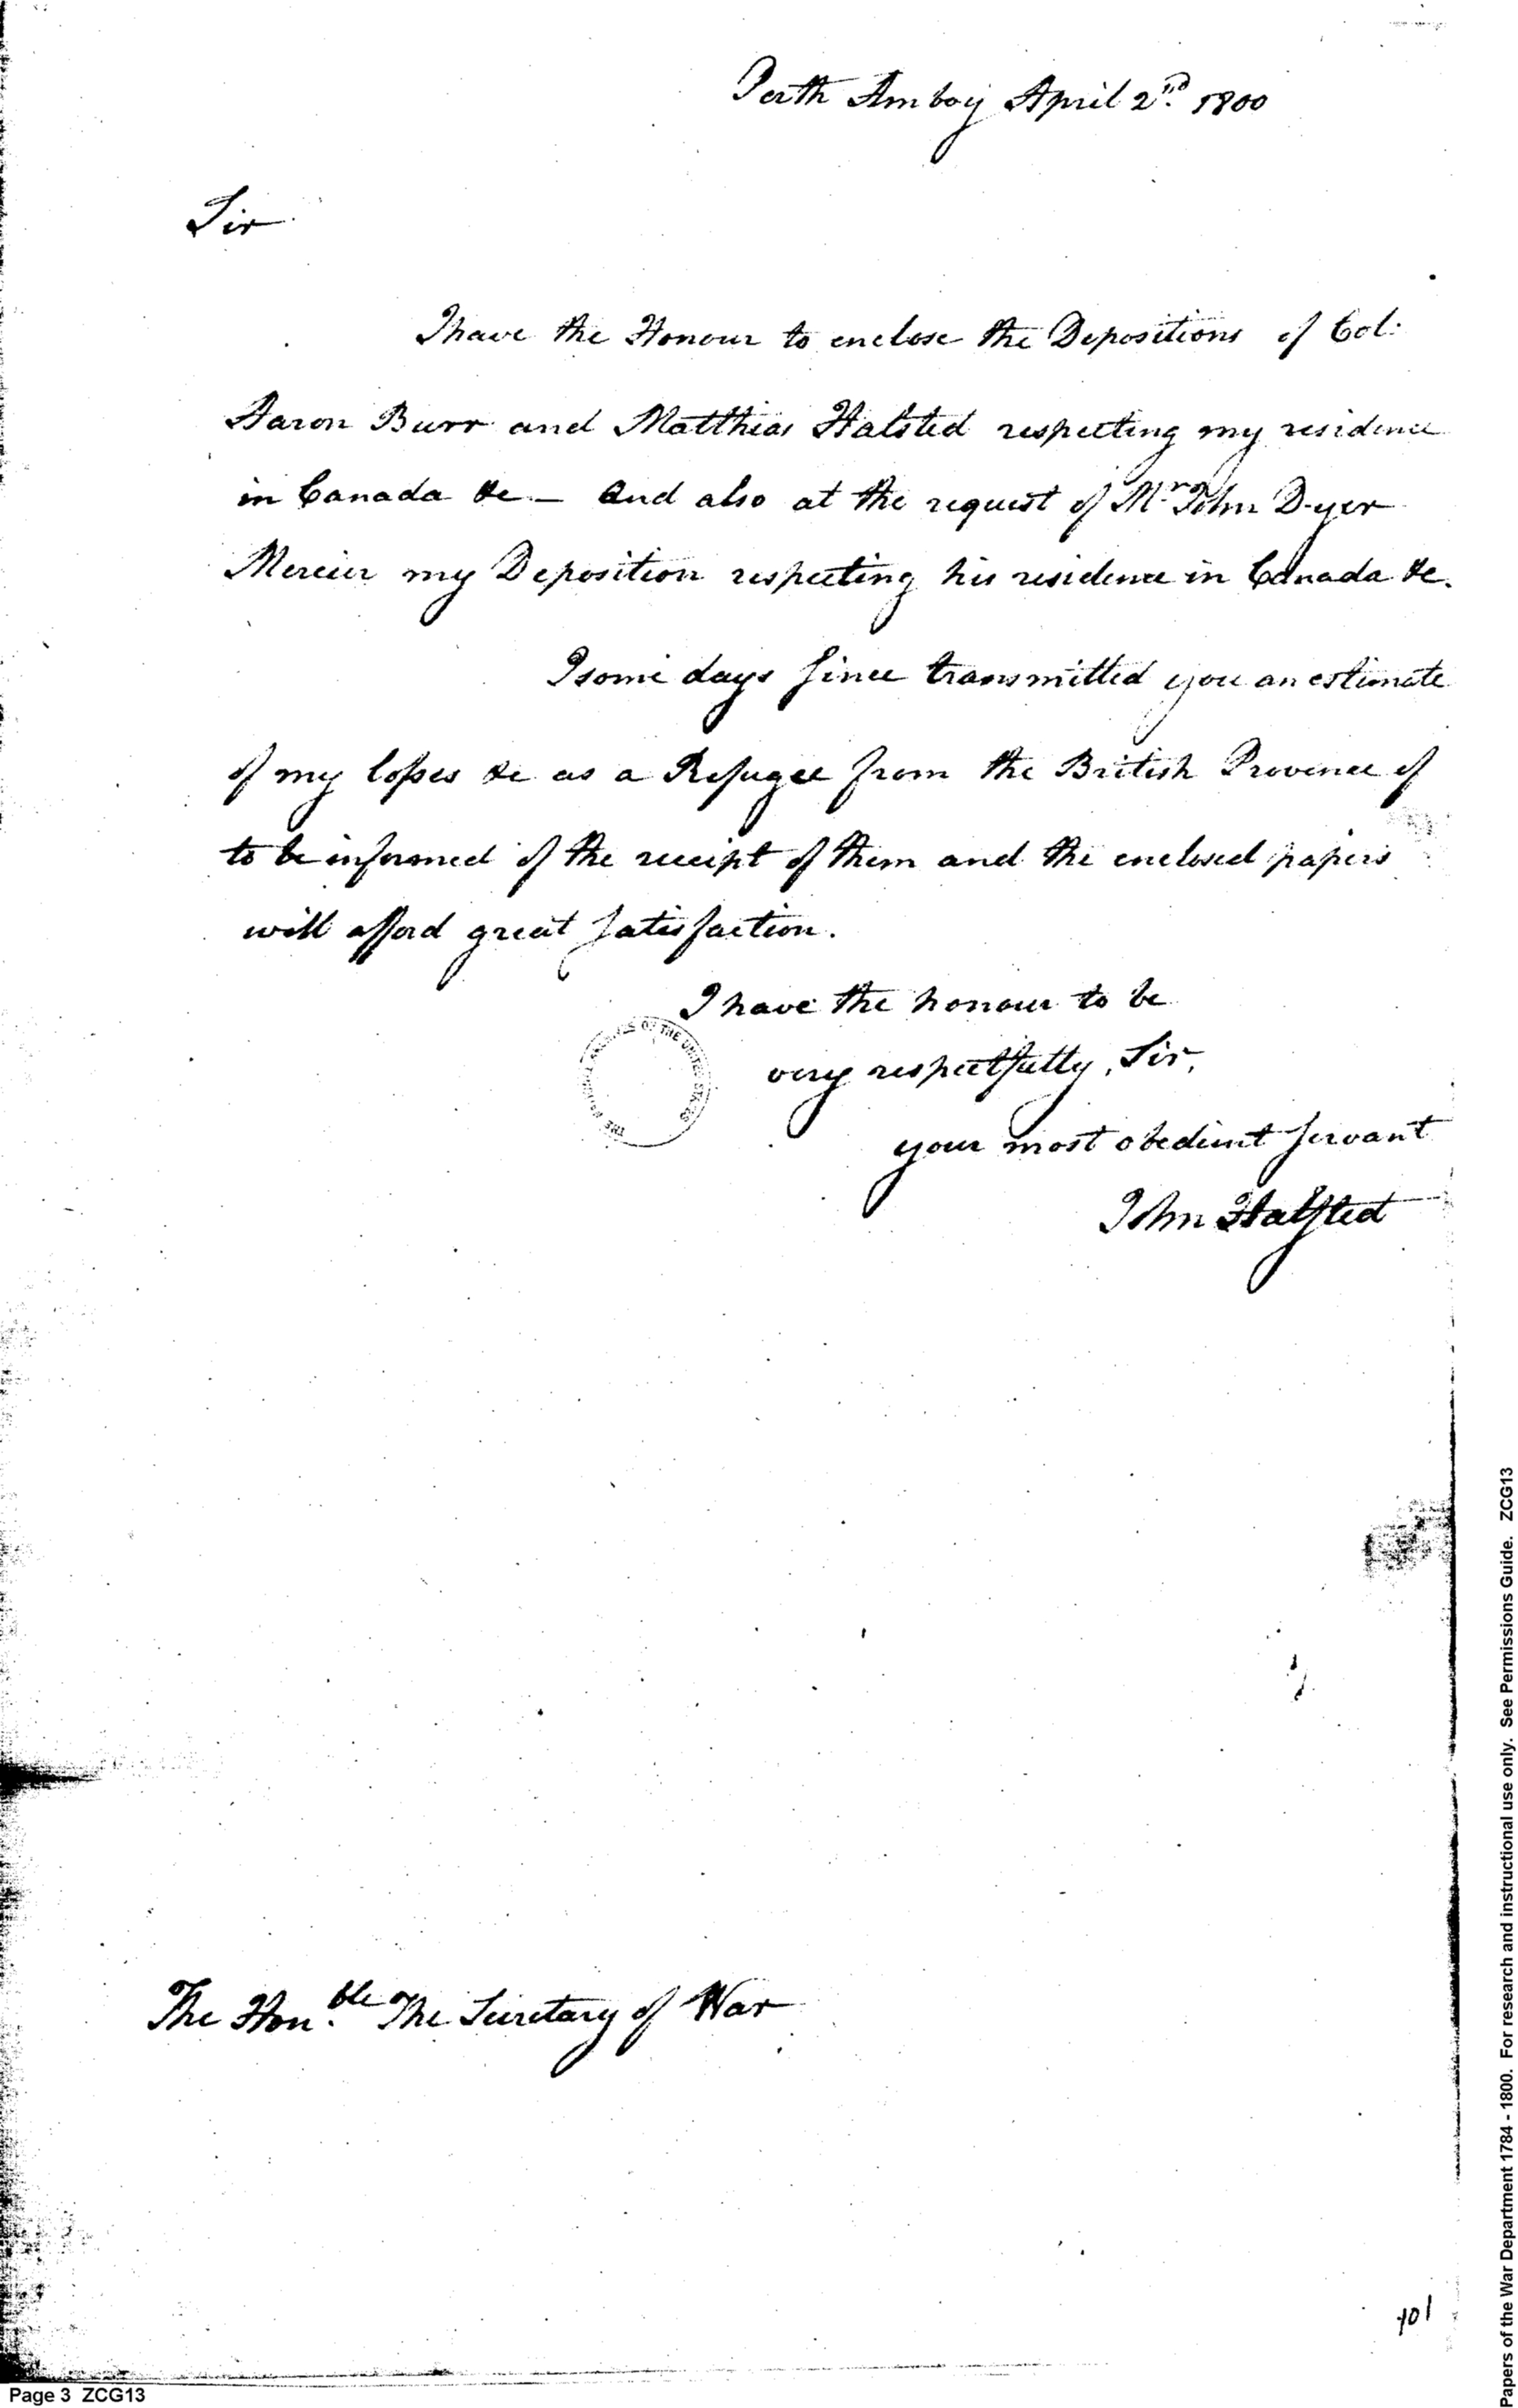 Perth Amboy April 2nd 1800
Sir
I have the Honour to enclose the Depositions of Col:
Aaron Burr and Matthias Halsted respecting my residence
in Canada &c — and also at the request of Mr John Dyer
Mercier my Deposition respecting his residence in Canada &c.
I some days since transmitted you an estimate
of my losses &c as a Refugee from the British Provence of
to be informed of the receipt of them and the enclosed papers
will afford great satisfaction.
I have the honour to be
very respectfully, Sir,
your most obedient servant
John Halsted
The Honble The Secretary of War
101
Page 3 ZCG13
Papers of the War Department 1784 - 1800. For research and instructional use only. See Permissions Guide. ZCG13